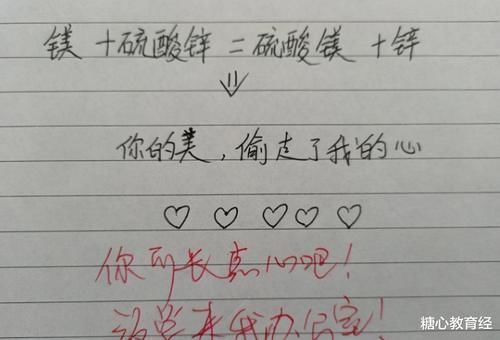 镁 + 硫酸锌 = 硫酸镁 + 锌
你的美，偷走了我的心
你可长点心吧！
来我办公室！
糖心教育经